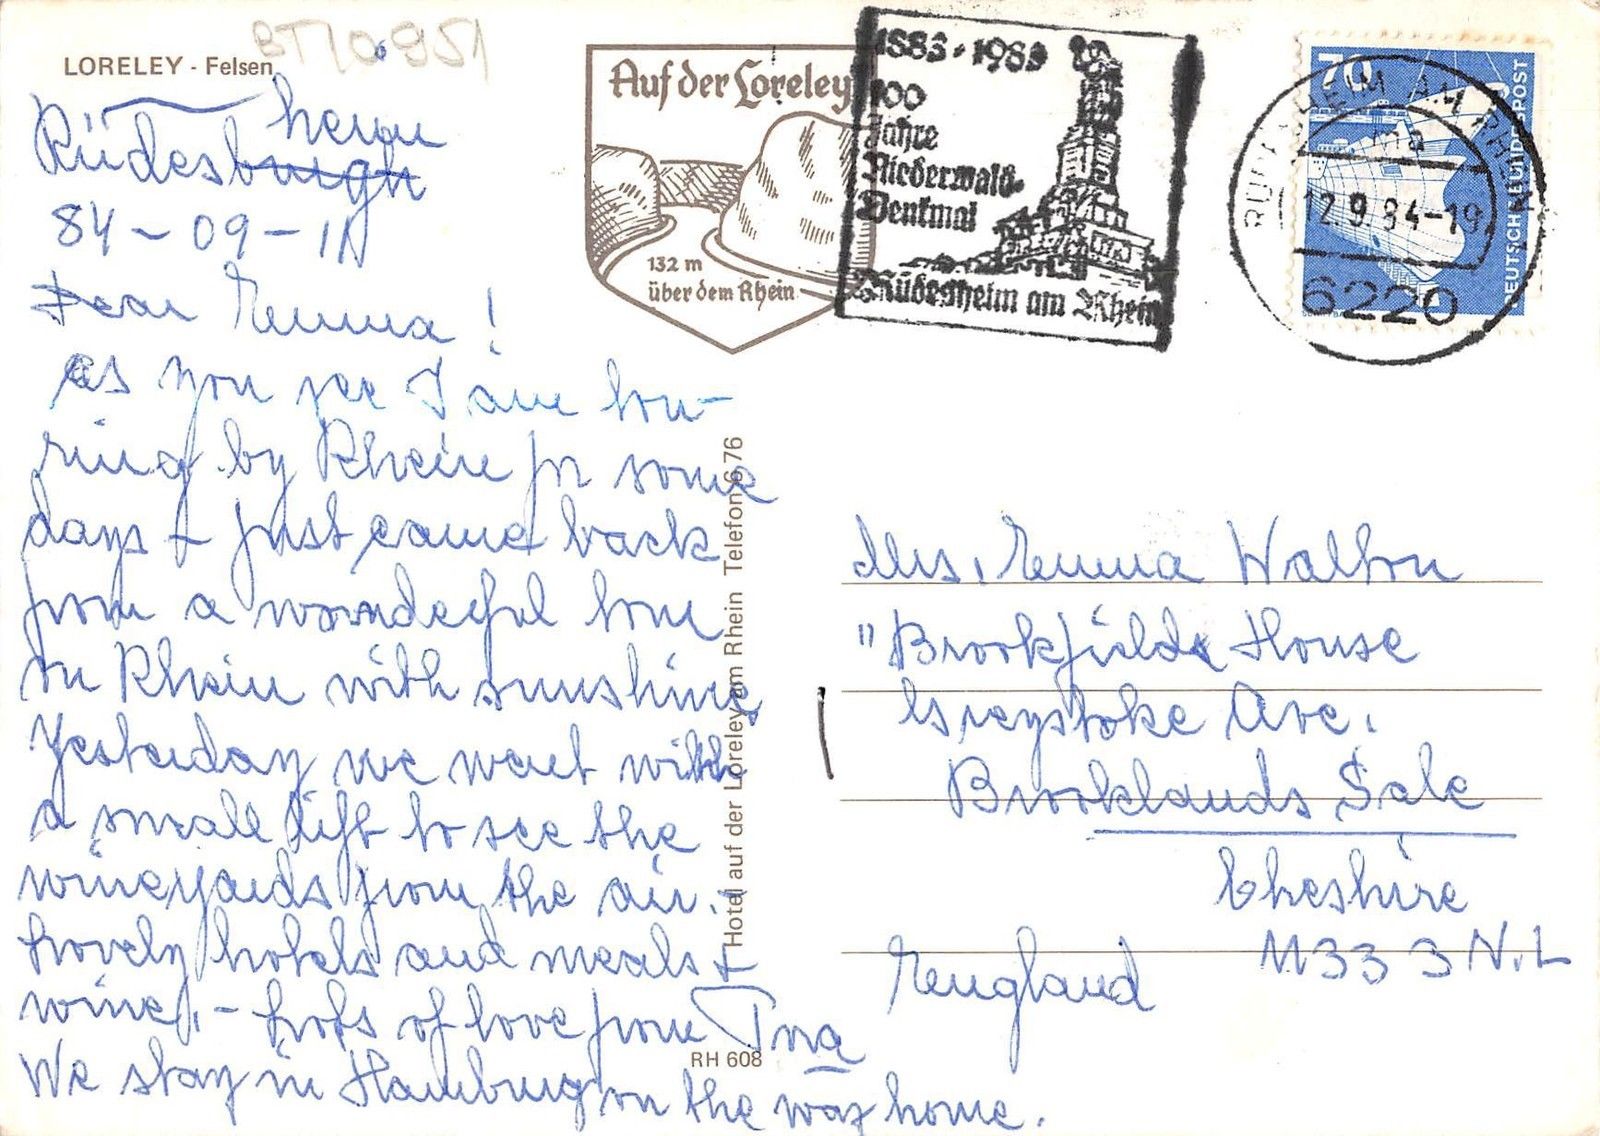 BT10951
LORELEY - Felsen
heim
Rüdesburgh
84-09-11
Dear Emma!
as you see I am tou-
ring by Rhein for some
days + just came back
from a wonndeful tour
on Rhein with sunnshine,
Yesterday we went with
a small lift to see the
wineyards from the air. +
Lovely hotels and meals +
wine, - Lots of love from
We stay in Hamburg on the way home.
RH 608
Hotel auf der Loreley am Rhein Telefon 676
Auf der Loreley
132 m
über dem Rhein
1883-1983
100
Jahre
Niederwald-
Denkmal
Rüdesheim am Rhein
70
DEUTSCHE BUNDESPOST
RÜDESHEIM AM RHEIN
ma
12.9.84-19
6220
Mrs. Emma Walton
"Brookfields House
Greystoke Ave.
Brooklands Sale
Cheshire
M33 3N.L
England